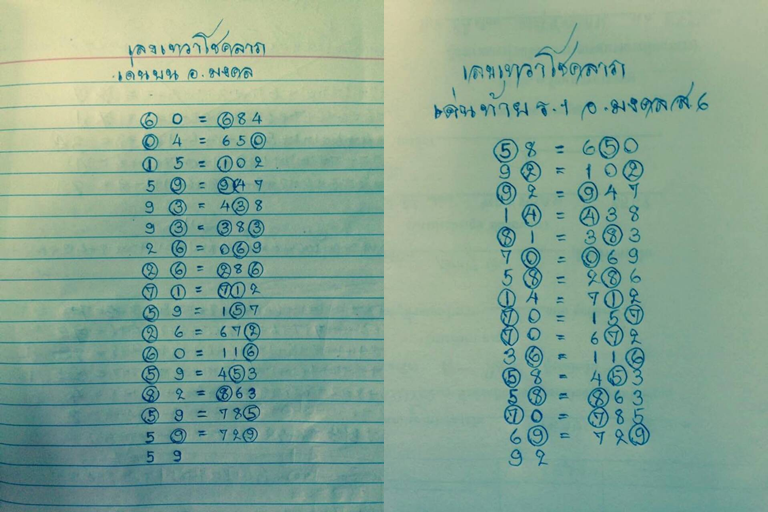 เลขเทวาโชคลาภ
เด่นบน อ.มงคล
6 0 = 684
0 4 = 650
1 5 = 102
5 9 = 947
9 3 = 438
9 3 = 383
2 6 = 069
2 6 = 286
7 1 = 712
5 9 = 157
2 6 = 672
6 0 = 116
5 9 = 453
8 2 = 863
5 9 = 785
5 9 = 729
5 9
เลขเทวาโชคลาภ
เด่นท้าย ร.1 อ.มงคล
5 8 = 650
9 2 = 102
9 2 = 947
1 4 = 438
8 1 = 383
7 0 = 069
5 8 = 286
1 4 = 712
7 0 = 157
7 0 = 672
3 6 = 116
5 8 = 453
5 8 = 863
7 0 = 785
6 9 = 729
9 2